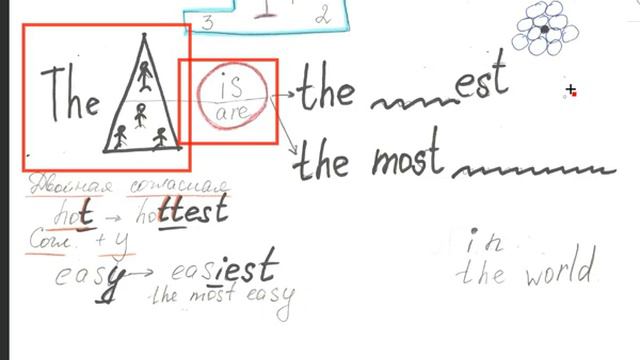 3 2
The is
are
the est
the most
Двойная согласная
hot → hottest
Согл. + y
easy → easiest
the most easy
in
the world